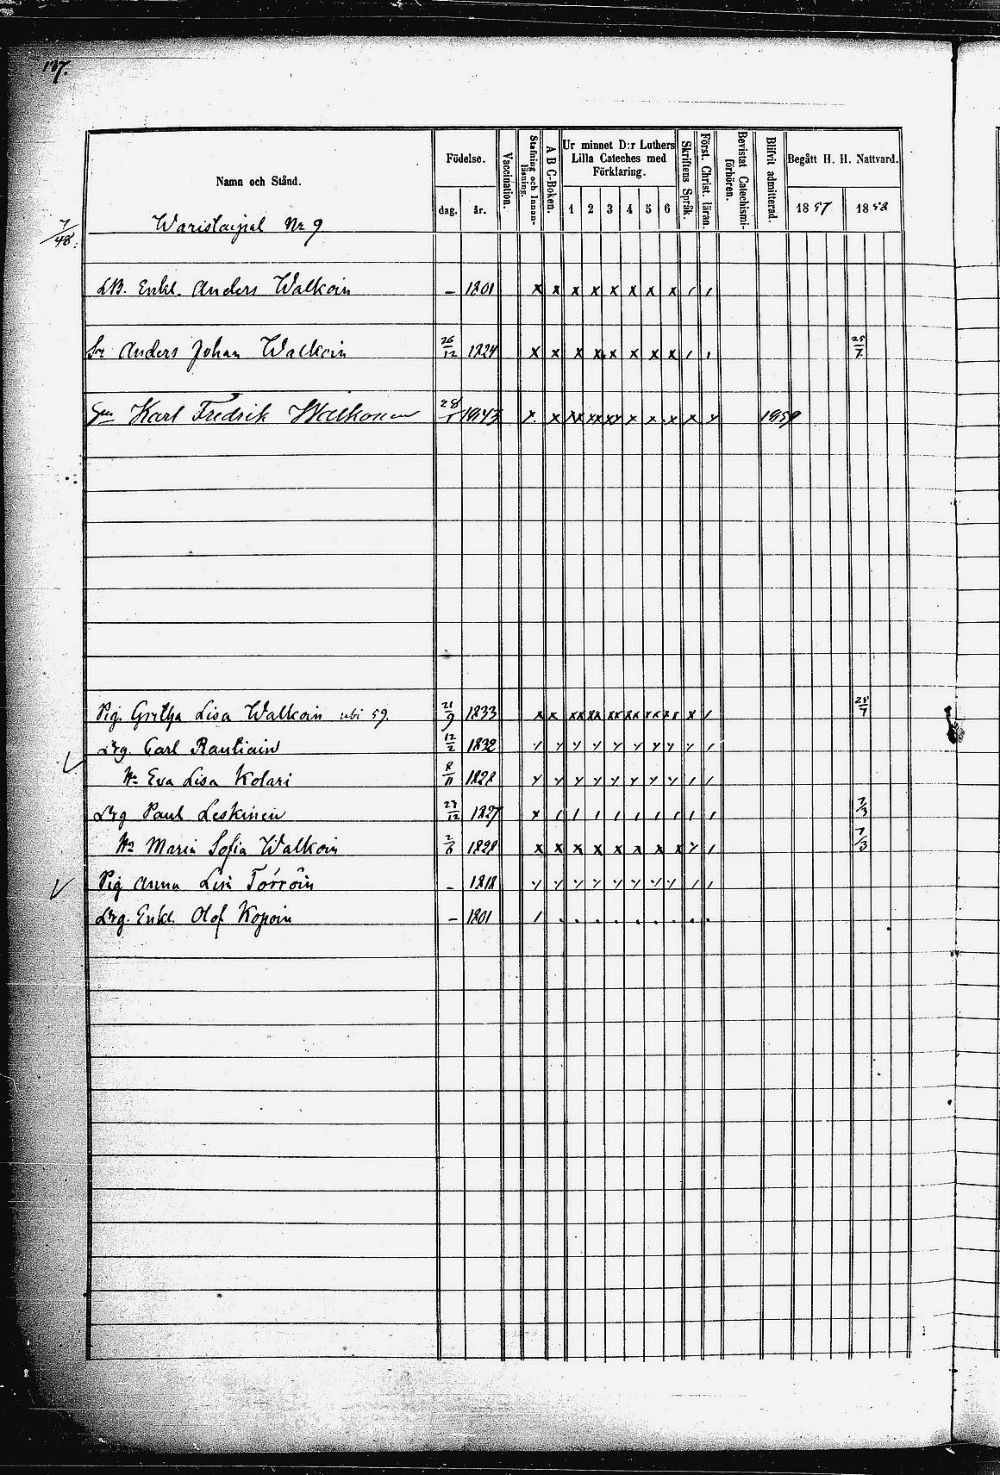 137.
Namn och Stånd.
Födelse.
dag.
år.
Vaccination.
Stafning och Innanläsning.
A B C-Boken.
Ur minnet D:r Luthers Lilla Cateches med Förklaring.
1 2 3 4 5 6
Skriftens Språk.
Först. Christ. läran.
Bevistat Catechismi-förhören.
Blifvit admitterad.
Begått H. H. Nattvard.
1857 1858
7/48.
Waristaipal Nr 9
Enkl. Anders Walkoin – 1801 x x x x x x x x / /
Sn Anders Johan Walkoin 26/12 1824 x x x x x x x x / / 25/7
Karl Fredrik Walkonen 28/1 1843 x x xx xx xx x x x x x 1859
Pig. Gretha Lisa Walkoin ubi 59. 21/9 1833 x x xx xx xx xx xx xx x / 25/7
Drg. Carl Rautiain 12/2 1832
Hu Eva Lisa Kolari 8/11 1828
Drg Paul Leskinen 27/12 1827 x / / / / / / / / / 7/3
Hu Maria Sofia Walkoin 2/6 1828 x x x x x x x x 7/3
Pig Anna Lisa Törröin – 1818
Drg. Enkl. Olof Kopoin – 1801